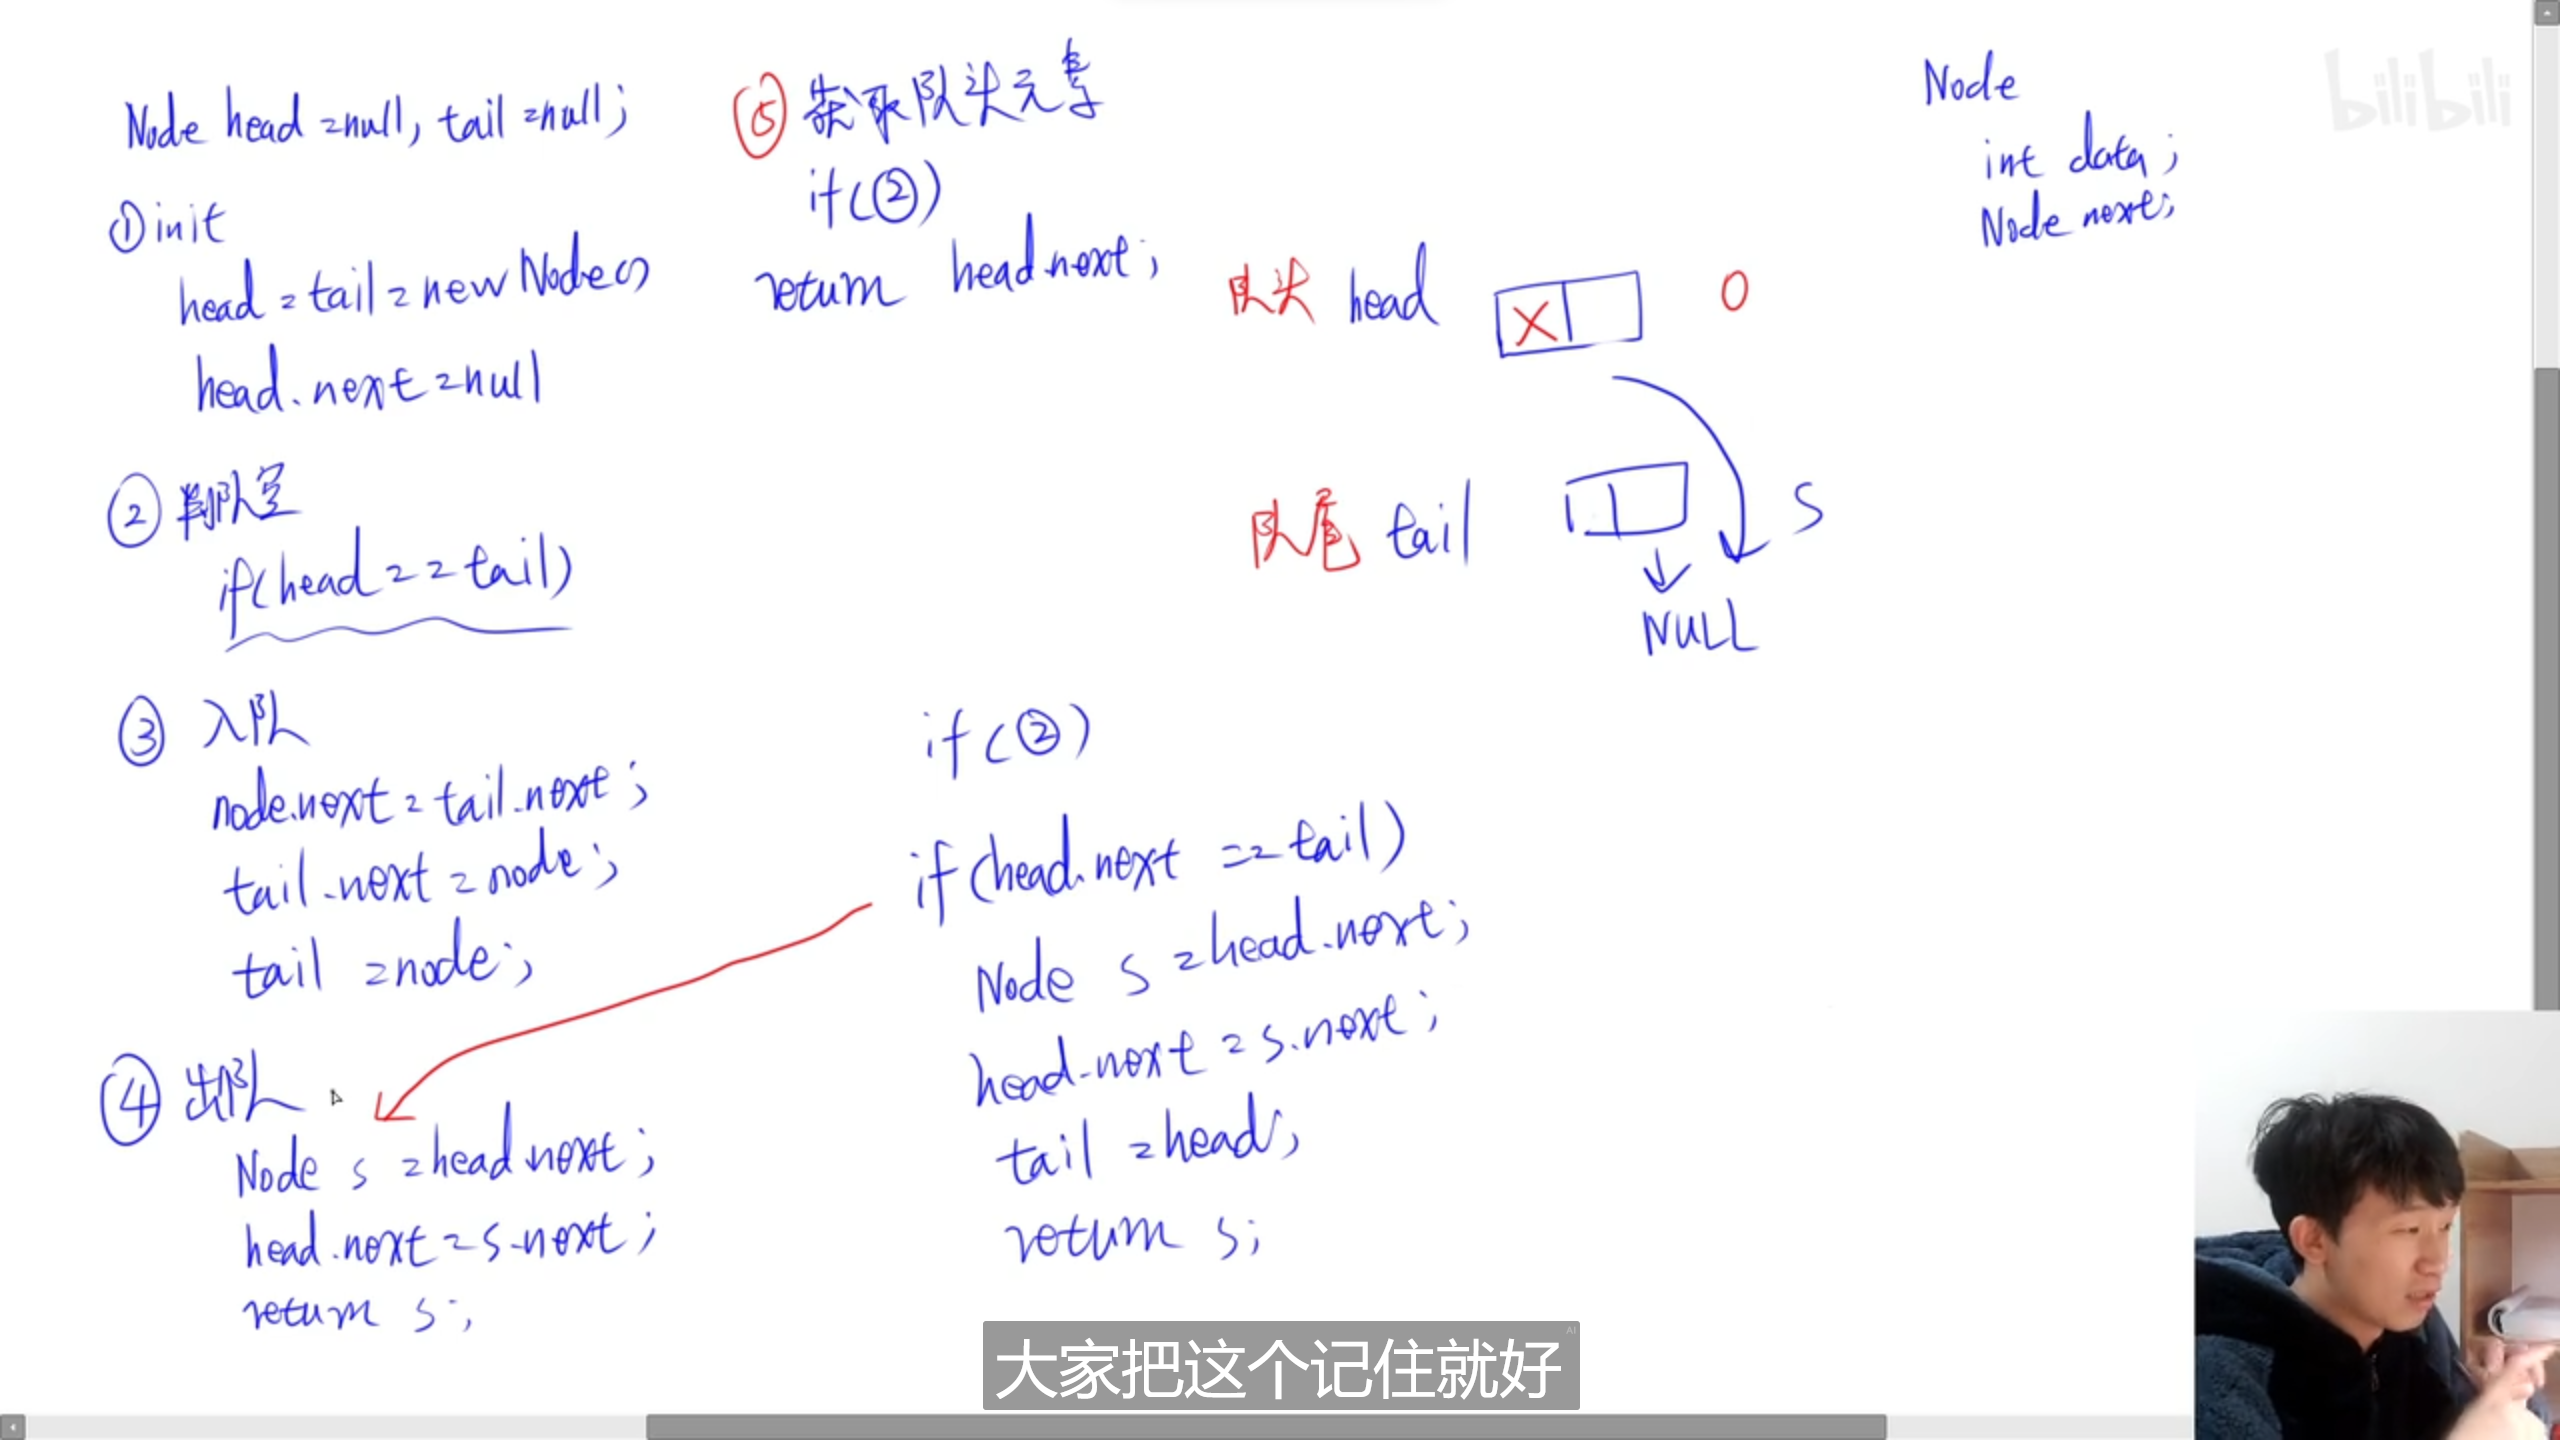 Node head=null, tail=null;
① init
head=tail=new Node()
head.next=null
② 判队空
if(head==tail)
③ 入队
node.next=tail.next;
tail.next=node;
tail =node;
④ 出队
Node s =head.next;
head.next=s.next;
return s;
⑤ 获取队头元素
if(②)
return head.next;
if(②)
if(head.next ==tail)
Node s =head.next;
head.next=s.next;
tail =head;
return s;
队头 head
X
0
队尾 tail
S
NULL
Node
int data;
Node next;
bilibili
大家把这个记住就好
AI